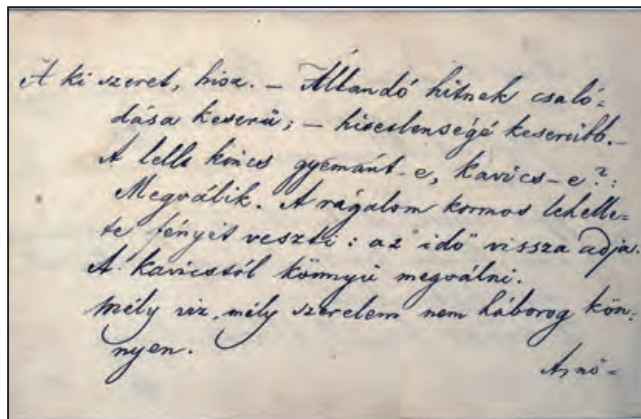 A ki szeret, hisz. – Állandó hitnek csaló-
dása keserü; – hisetlenségé keserübb. –
A lelki kincs gyemánt-e, kavics-e?:
Megválik. A rágalom kormos lehelle-
te fényét veszti: az idő vissza adja.
A kavicstól könnyü megválni.
Mély viz, mély szerelem nem háborog kön-
nyen.